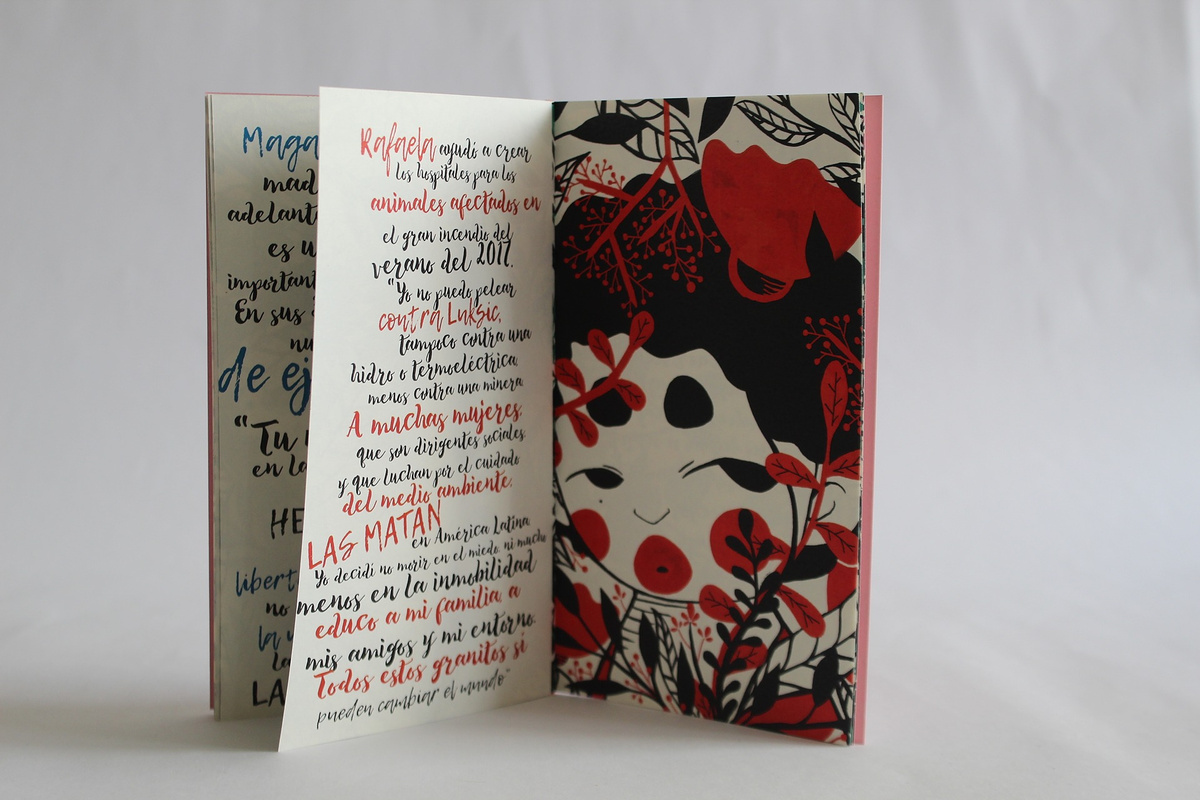 Maga
mad
adelant
es u
important
En sus
nu
de ej
“Tu
en la
HE
libert
no
la
LA
Rafaela ayudó a crear
los hospitales para los
animales afectados en
el gran incendio del
verano del 2017.
“Yo no puedo pelear
contra Luksic,
tampoco contra una
hidro o termoeléctrica,
menos contra una minera.
A muchas mujeres,
que son dirigentes sociales
y que luchan por el cuidado
del medio ambiente,
LAS MATAN
en América Latina
Yo decidí no morir en el miedo, ni mucho
menos en la inmobilidad
educo a mi familia, a
mis amigos y mi entorno.
Todos estos granitos sí
pueden cambiar el mundo”